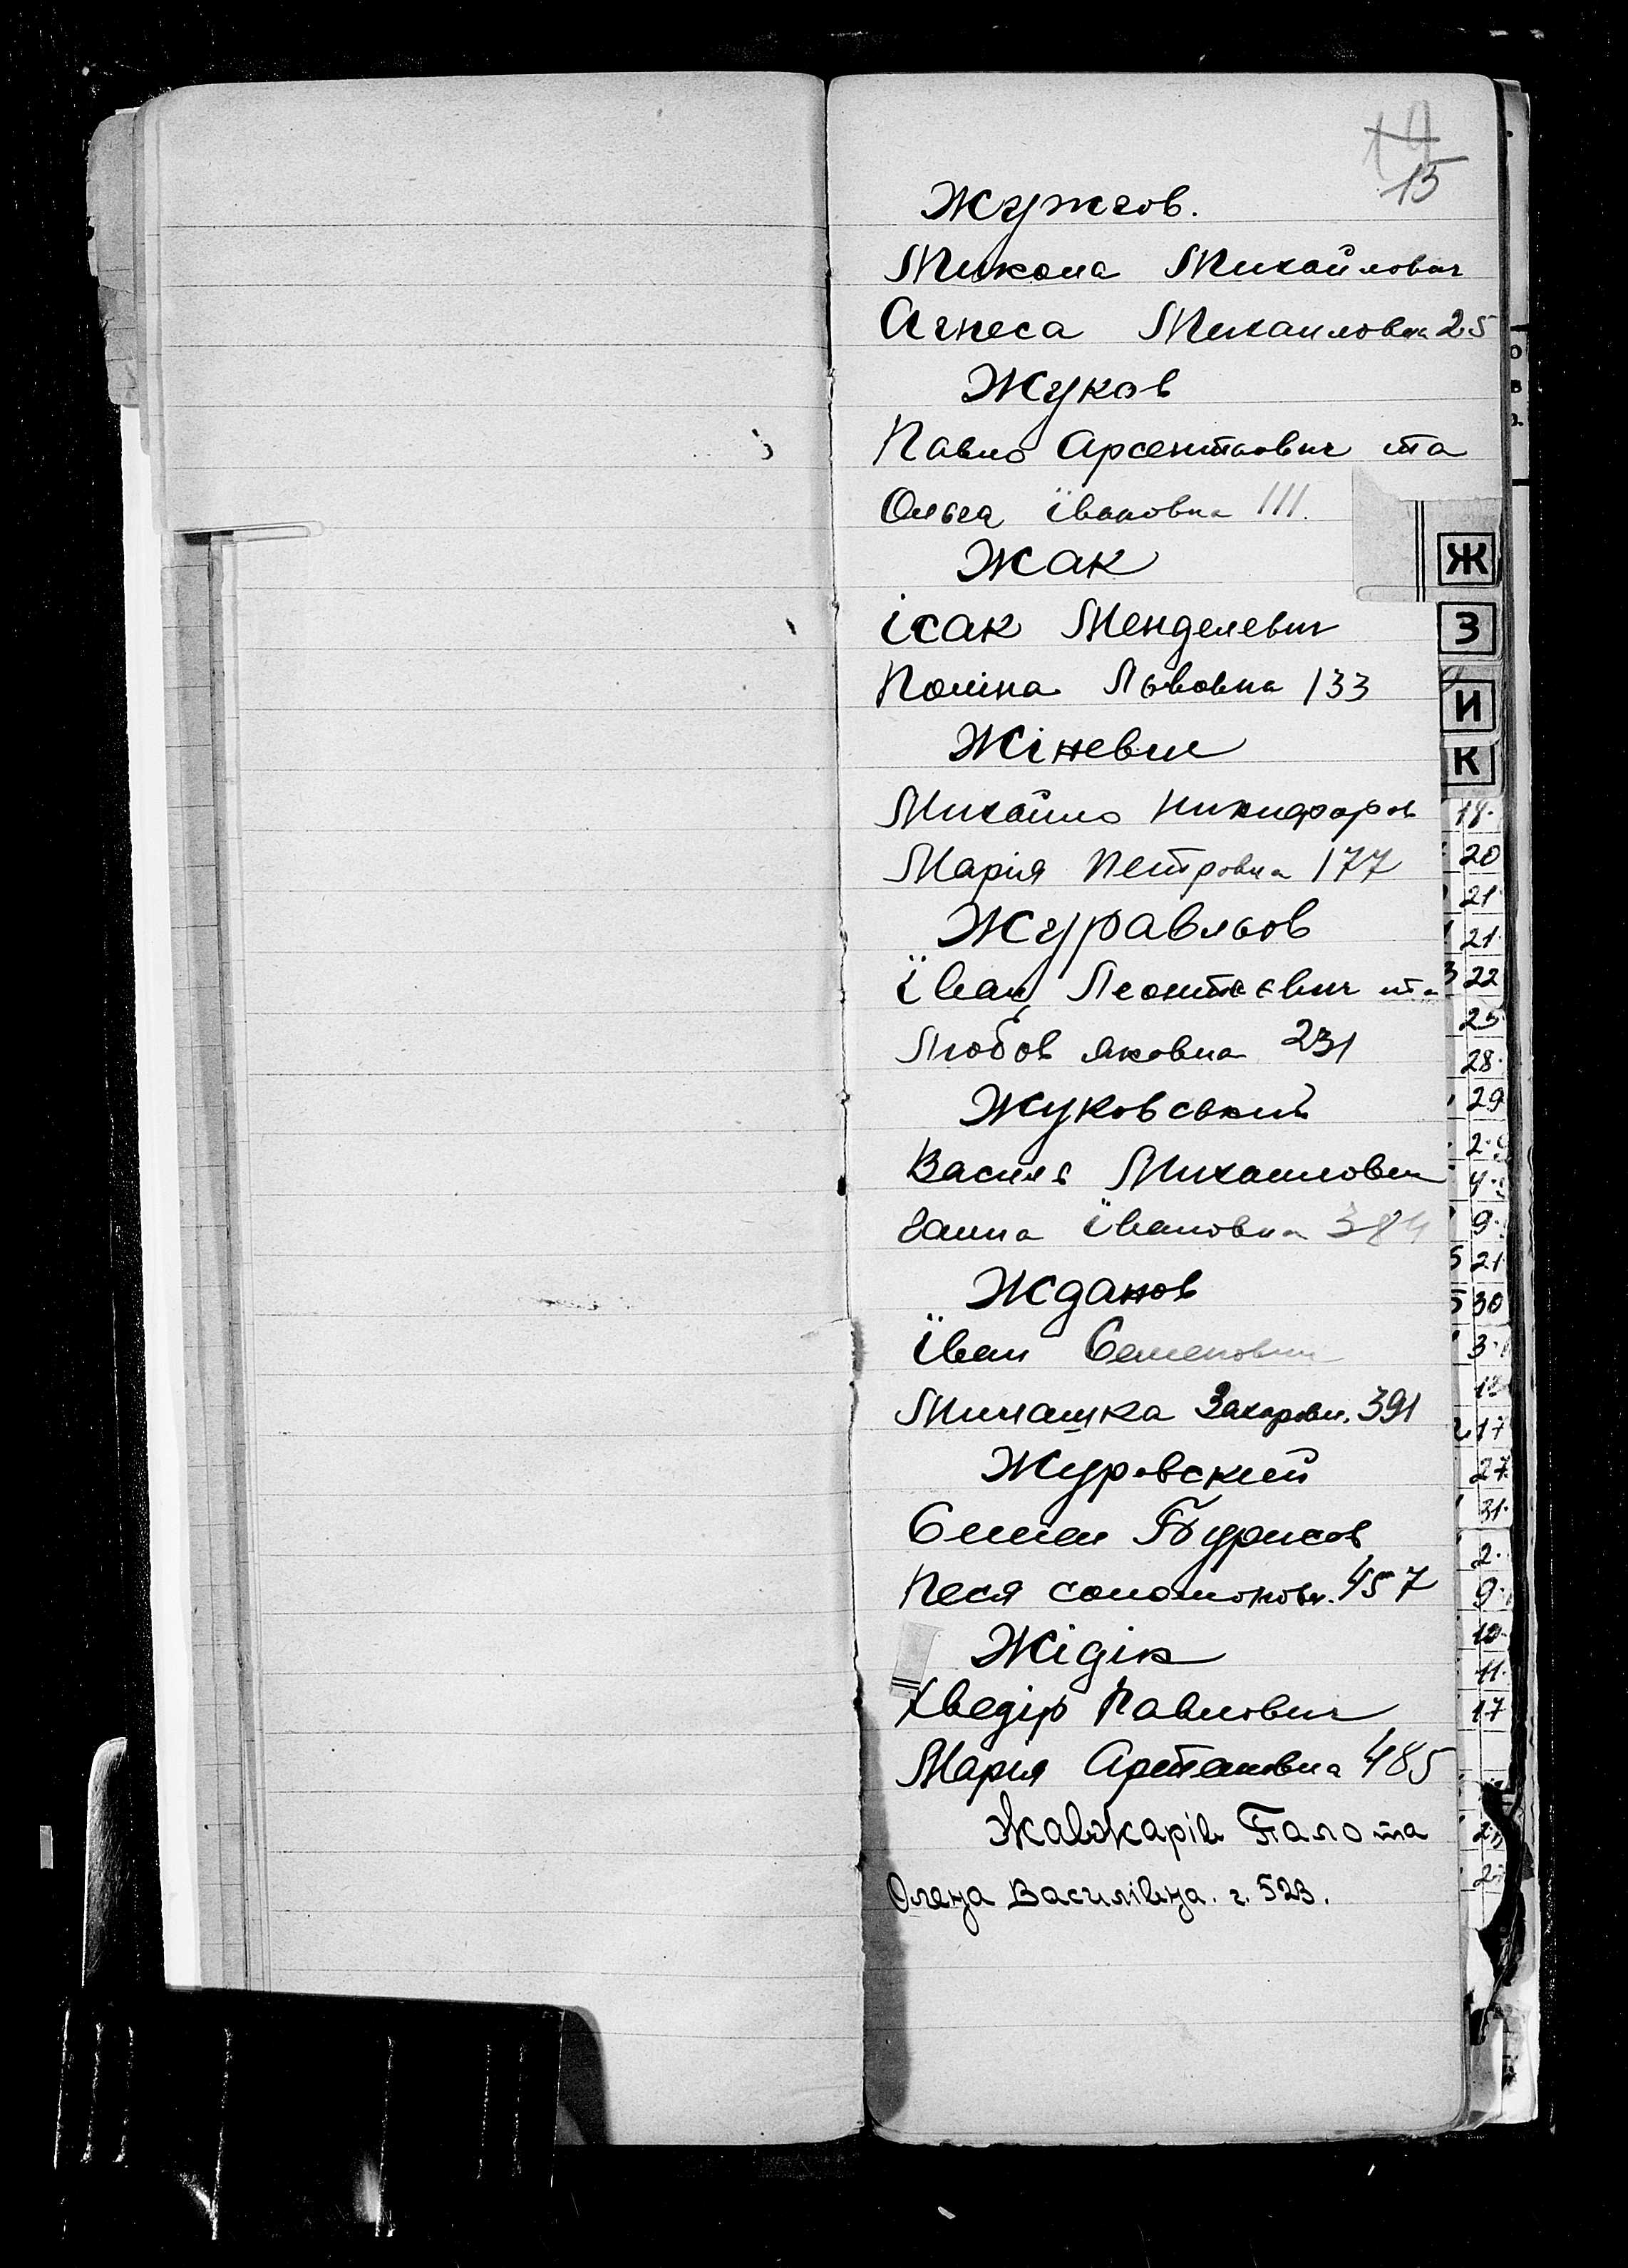 14
15
Жужгов.
Микола Михайлович
Агнеса Михаиловн 25
Жуков
Павло Арсентьович та
Ольга Ївановна 111.
Жак
Ісак Менделевич
Поліна Львовна 133
Жіневич
Михайло Никифоров
Марія Петровна 177
Журавльов
Їван Леонтьєвич та
Любов Яковна 231
Жуковський
Василь Михаилович
Ганна Ївановна 384
Жданов
Їван Семенович
Захаровн. 391
Журовский
Семен Бурисов
Песя Соломоновн. 457
Жідік
Хведір Павлович
Мария Артемовна 485
Жавжарів Пало та
Олена Василівна. г. 523.
Ж
З
И
К
18.
20
21.
21.
22
25
28.
29
2.
4.
9.
21
30
3.
17
27
31.
2.
9.
10.
11.
17